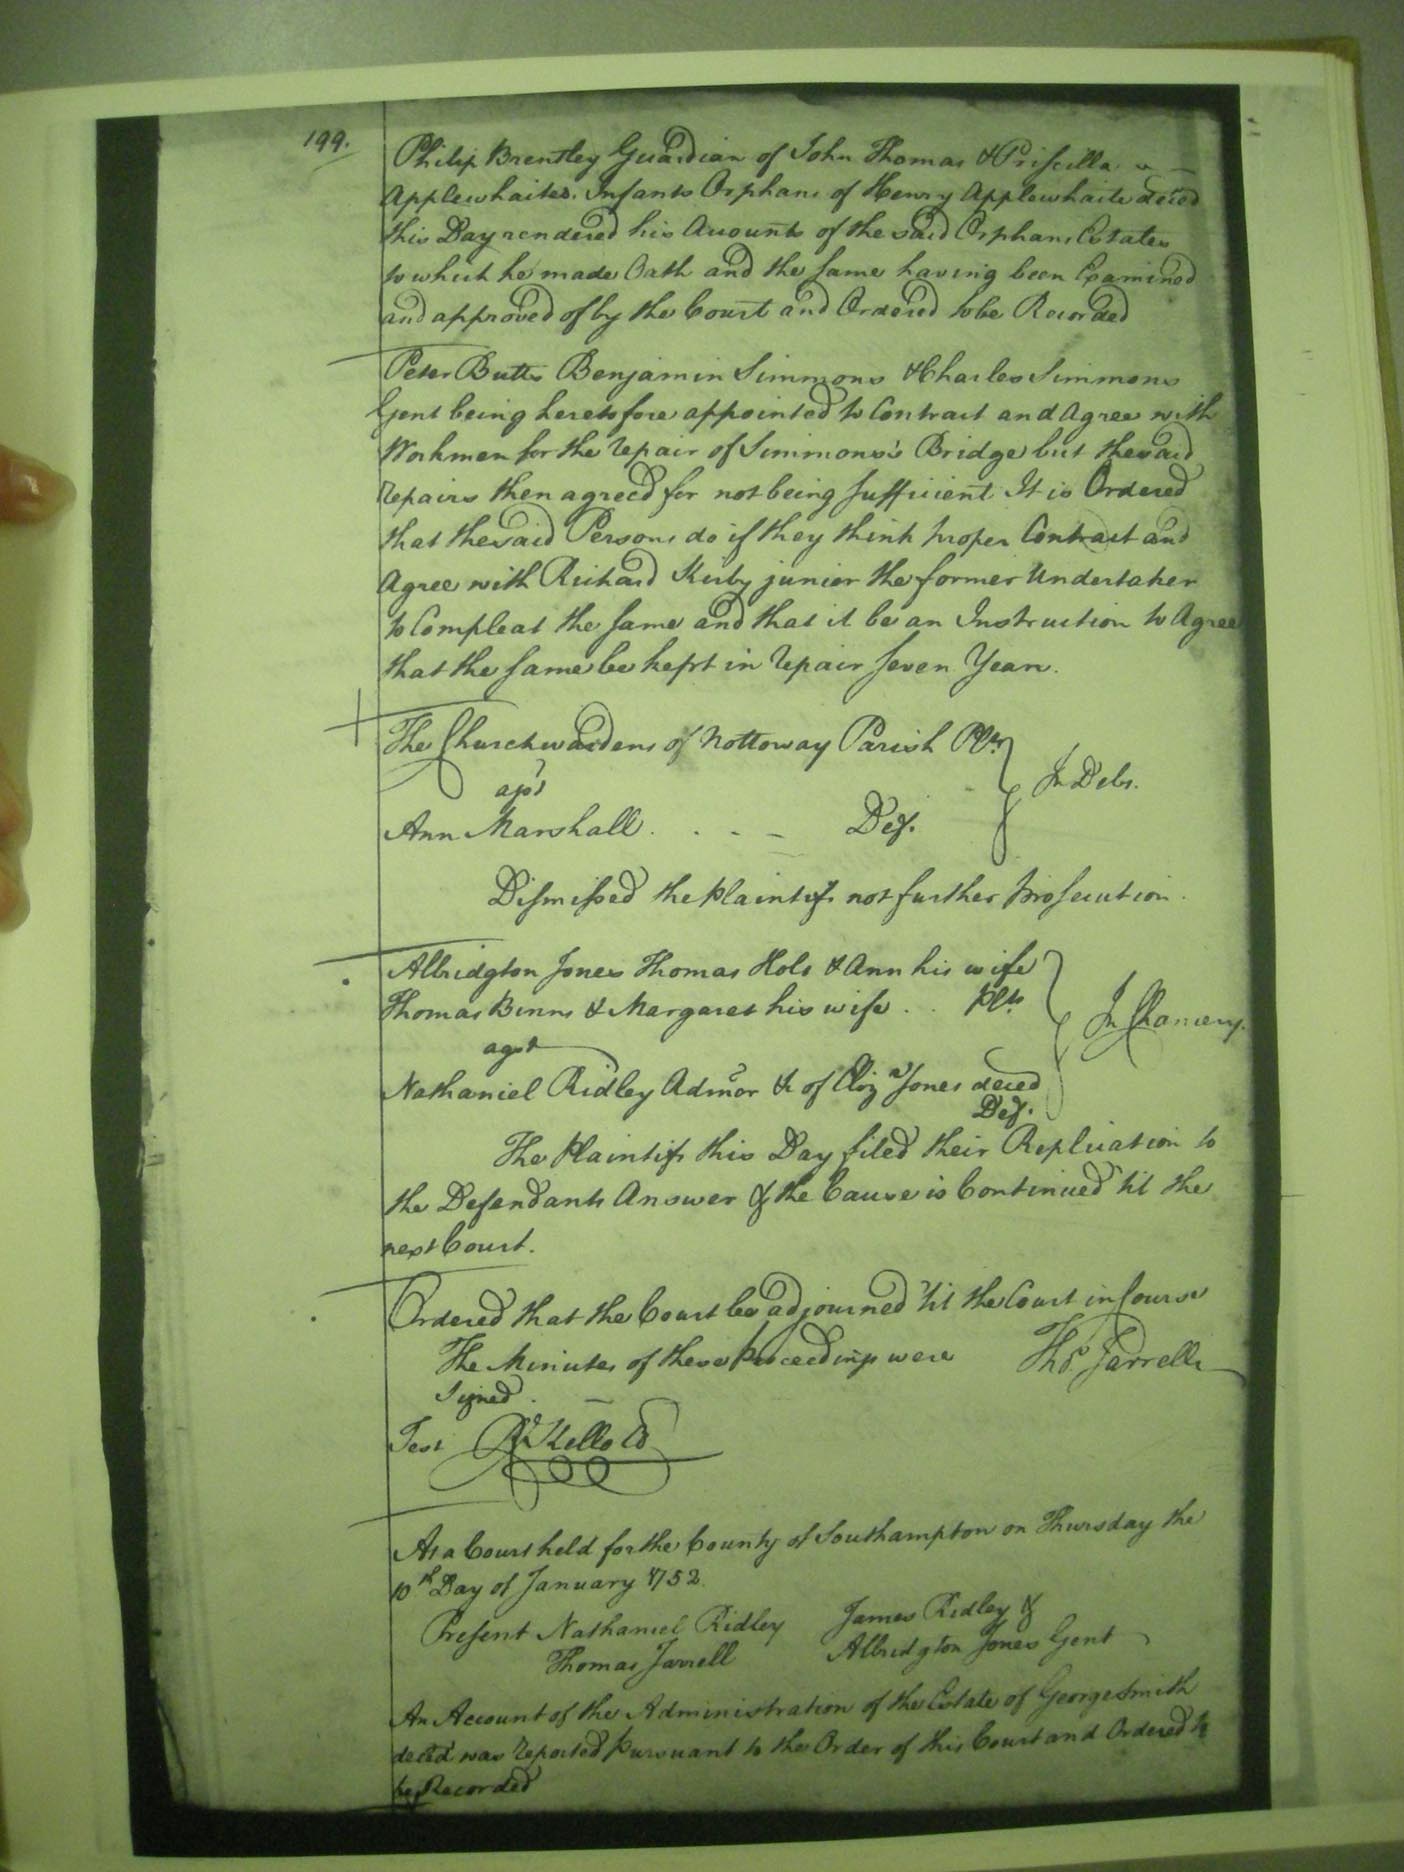 199.
Philip Brantley Guardian of John Thomas & Priscilla
Applewhaites Infants Orphans of Henry Applewhaite deced
this Day rendered his Accounts of the said Orphans Estates
to which he made Oath and the same having been Examined
and approved of by the Court and Ordered to be Recorded
Peter Butts Benjamin Simmons & Charles Simmons
Gent being heretofore appointed to Contract and Agree with
Workmen for the repair of Simmons's Bridge but the said
repairs then agreed for not being sufficient It is Ordered
that the said Persons do if they think proper Contract and
Agree with Richard Kirby junier the former Undertaker
to Compleat the same and that it be an Instruction to Agree
that the same be kept in repair seven Years.
The Churchwardens of Nottoway Parish Plts.
agst
In Debt.
Ann Marshall . . - - Def.
Dismissed the plaintifs not further prosecution.
Albridgton Jones Thomas Holt & Ann his wife
Thomas Binns & Margaret his wife . . Plts
In Chancery.
agst
Nathaniel Ridley Admor &c of Eliza Jones deced
Def.
The Plaintifs this Day filed their Replication to
the Defendants Answer & the Cause is Continued 'til the
next Court.
Ordered that the Court be adjourned 'til the Court in Course
The Minutes of these proceedings were Thos. Jarrell
Signed.
Test Rd Kello Cl
At a Court held for the County of Southampton on Thursday the
10th Day of January 1752
Present Nathaniel Ridley James Ridley &
Thomas Jarrell Albridgton Jones Gent
An Account of the Administration of the Estate of George Smith
deced was reported pursuant to the Order of this Court and Ordered to
be Recorded